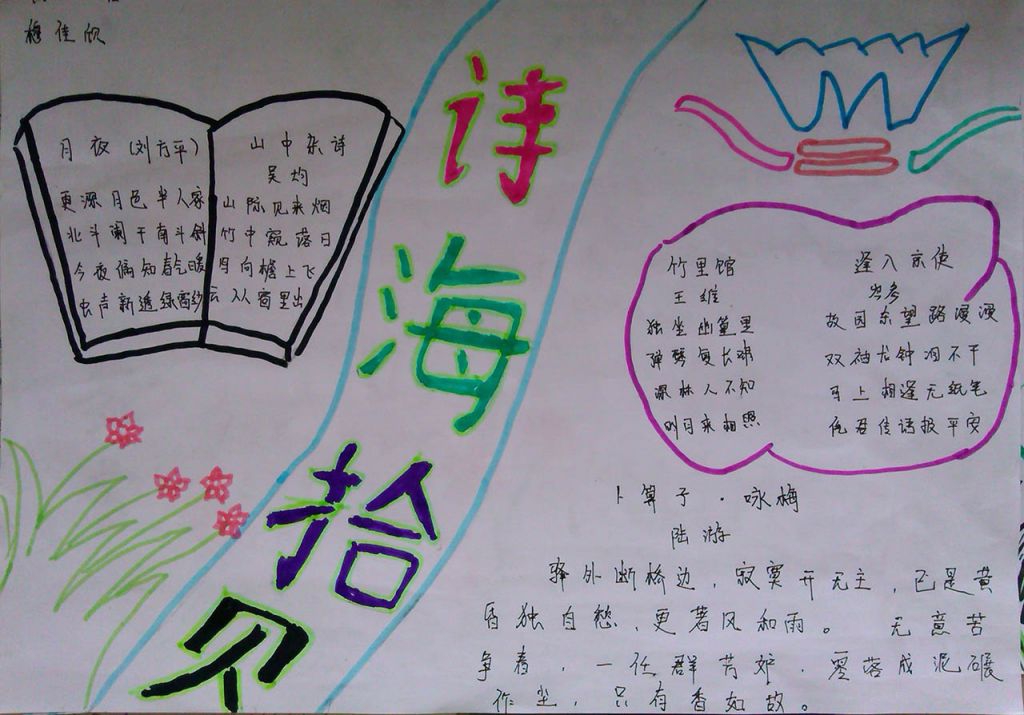 穆佳欣
诗海拾贝
月夜（刘方平）
更深月色半人家
北斗阑干南斗斜
今夜偏知春气暖
虫声新透绿窗纱
山中杂诗
吴均
山际见来烟
竹中窥落日
鸟向檐上飞
云从窗里出
竹里馆
王维
独坐幽篁里
弹琴复长啸
深林人不知
明月来相照
逢入京使
岑参
故园东望路漫漫
双袖龙钟泪不干
马上相逢无纸笔
凭君传语报平安
卜算子·咏梅
陆游
驿外断桥边，寂寞开无主，已是黄
昏独自愁，更著风和雨。 无意苦
争春，一任群芳妒，零落成泥碾
作尘，只有香如故。